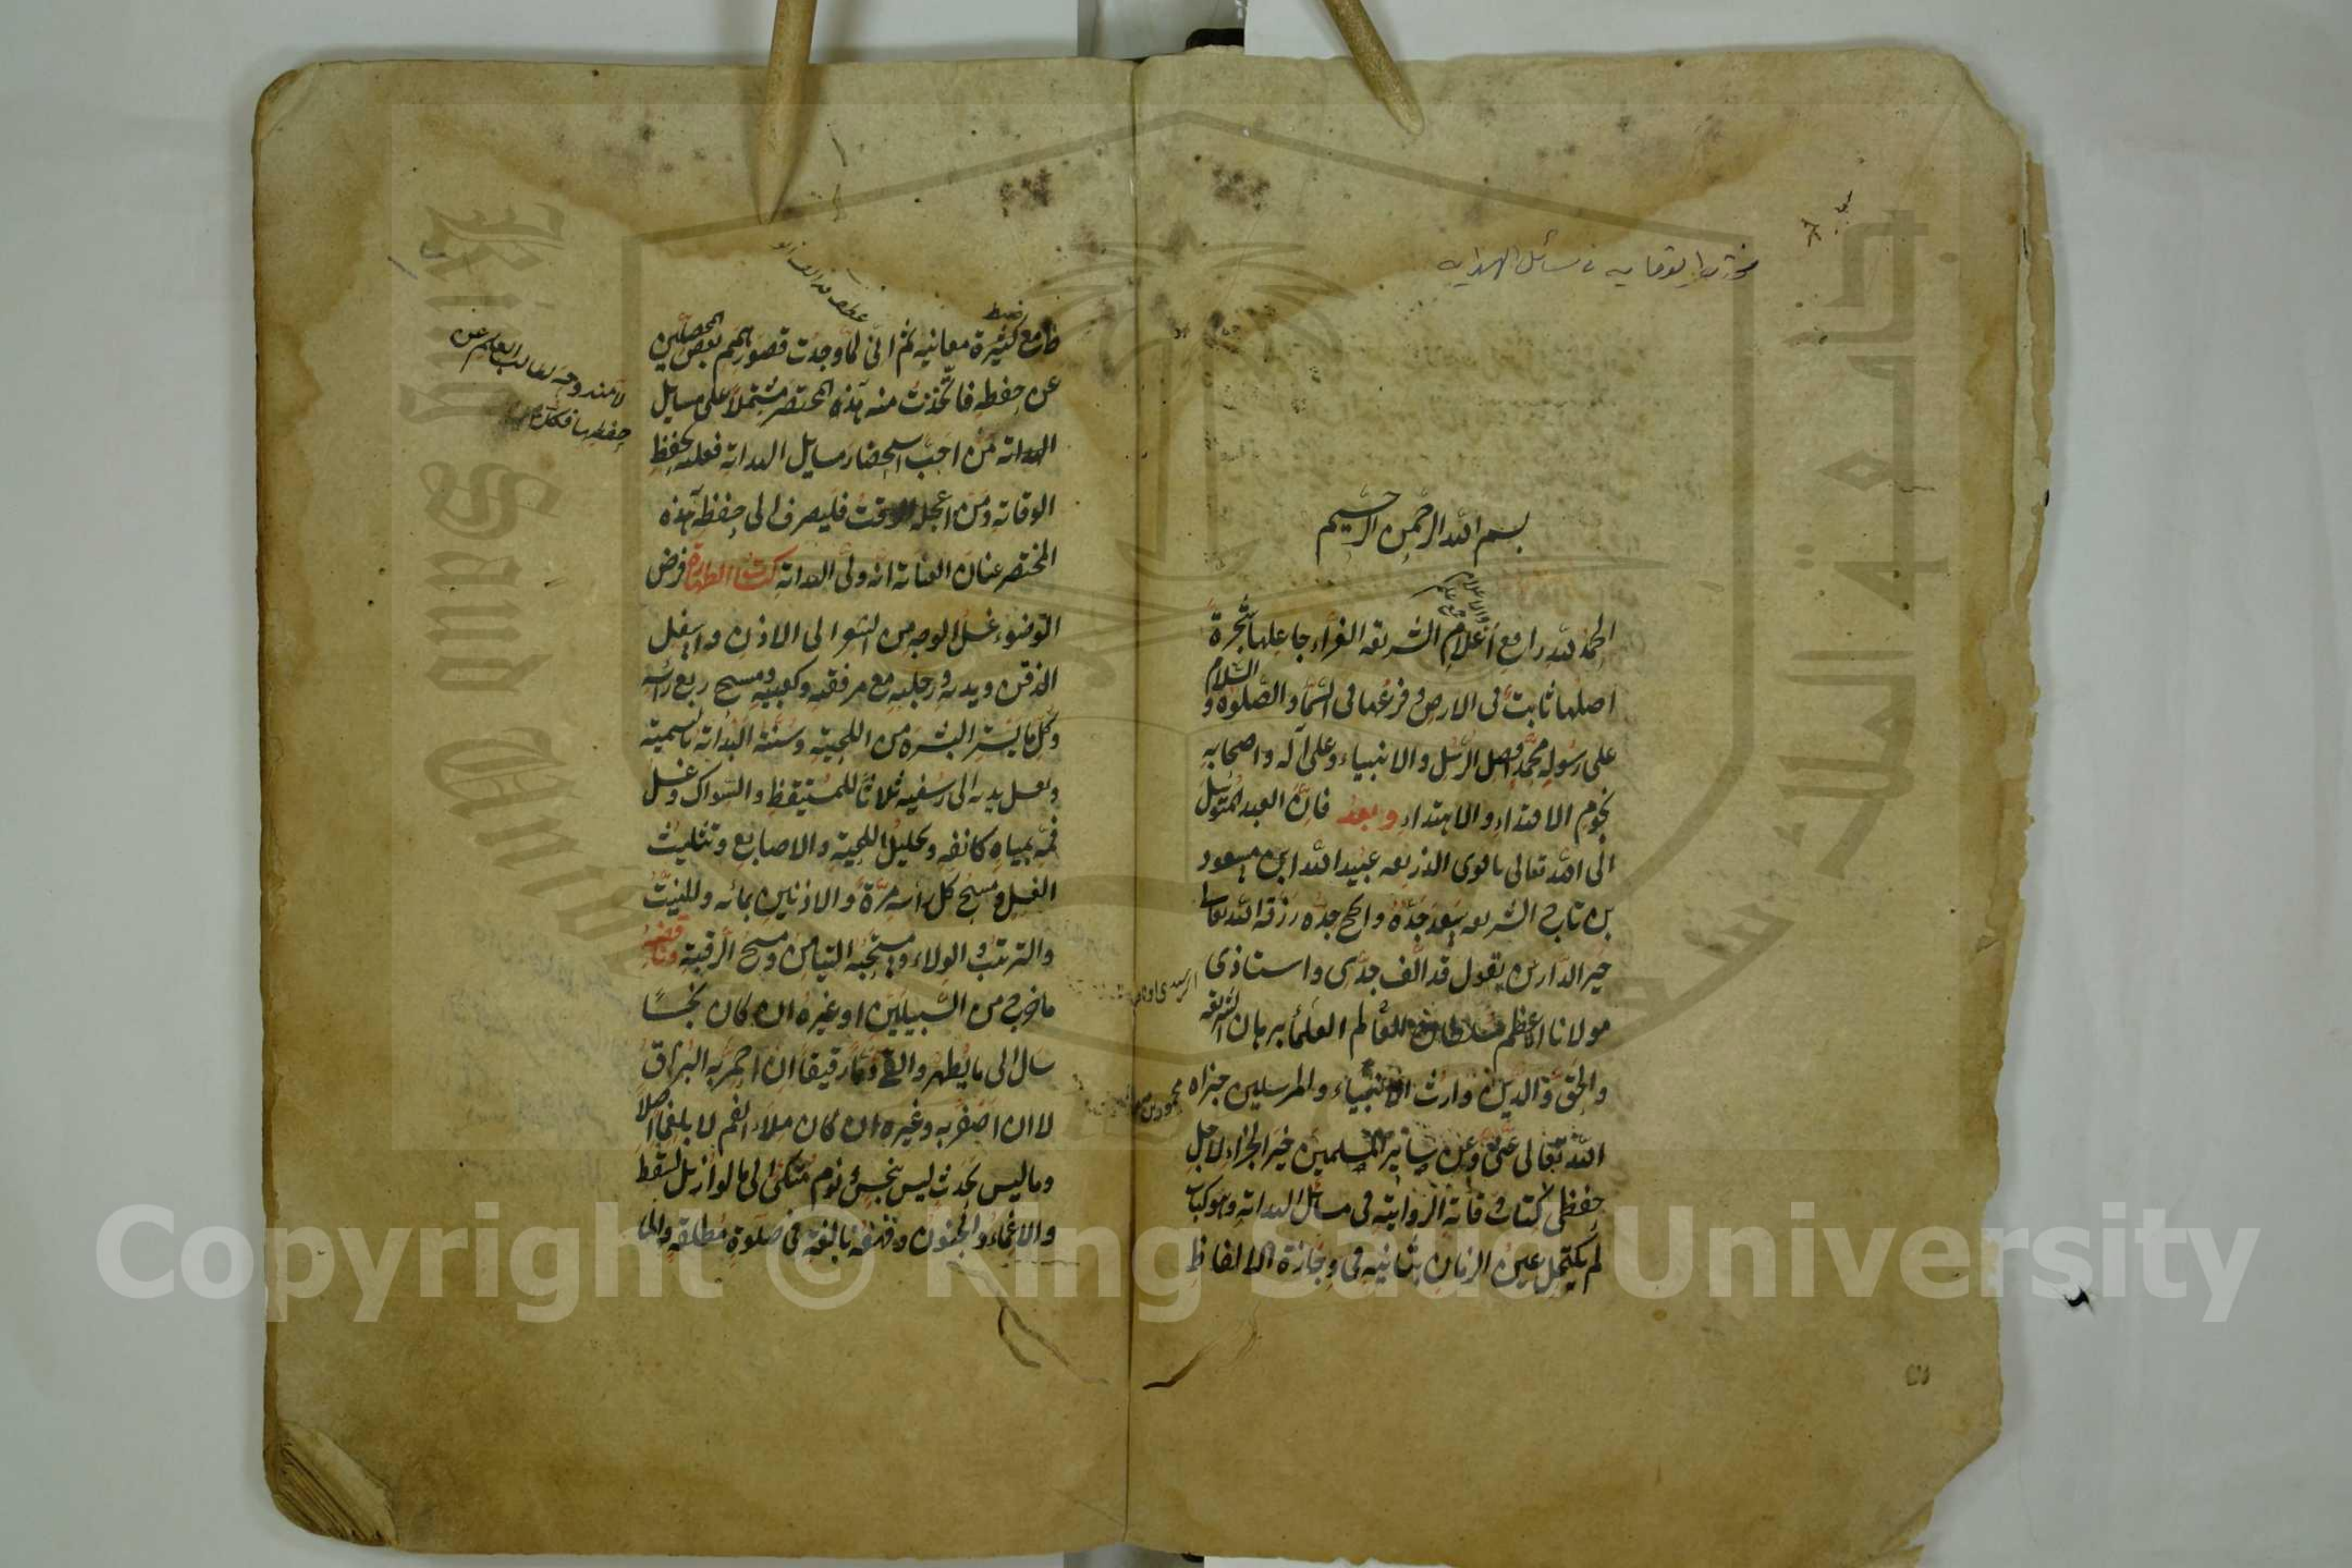 مختصر الوقايه في مسائل الهدايه
بسم الله الرحمن الرحيم
الحمد لله رافع أعلام الشريعة الغراء جاعلها شجرة
اصلها ثابت في الارض وفرعها في السماء والصلوة و السلام
على رسوله محمد افضل الرسل والانبياء وعلى آله واصحابه
نجوم الاقتداء والاهتداء وبعد فان العبد المتوسل
الى الله تعالى باقوى الذريعه عبيد الله ابن مسعود
بن تاج الشريعه سعد جده وانجح جده رزقه الله تعالى
خير الدارين يقول قد الف جدى واستاذى
مولانا الاعظم سلطان العلماء برهان الشريعة
والحق والدين وارث الانبياء والمرسلين جزاه
الله تعالى عنى وعن سائر المسلمين خير الجزاء لاجل
حفظى كتاب وقاية الرواية في مسائل الهداية وهو كتاب
لم يكتحل عين الزمان بثانيه في وجازة الالفاظ
مع كثرة معانيه ثم انى لما وجدت قصور همم بعض المحصلين
عن حفظه فاتخذت منه هذه المختصر مشتملا على مسايل
الهداية من احب استحضار مسايل الهداية فعليه بحفظ
الوقاية ومن اعجله الوقت فليصرف الى حفظ هذه
المختصر عنان العناية انه ولى الهداية كتاب الطهارة فرض
التوضوء غسل الوجه من الشعر الى الاذن واسفل
الذقن ويديه ورجليه مع مرفقيه وكعبيه ومسح ربع رأسه
وكل ما يستر البشرة من اللحية وسنته البداية بالتسمية
وبغسل يديه الى رسغيه ثلاثا للمستيقظ والسواك وغسل
فمه بمياه كانفه وتخليل اللحية والاصابع وتثليث
الغسل ومسح كل رأسه مرة والاذنين بمائه والنية
والترتيب والولاء ومستحبه التيامن ومسح الرقبة وناقضه
ما خرج من السبيلين او غيره ان كان نجسا
سال الى ما يطهر والقئ دما رقيقا ان احمر به البزاق
لا ان اصفر به وغيره ان كان ملاء الفم لا بلغما اصلا
وما ليس بحدث ليس بنجس ونوم متكئ الى ما لو ازيل لسقط
والاغماء والجنون وقهقهة بالغ في صلوة مطلقة
Copyright © King Saud University